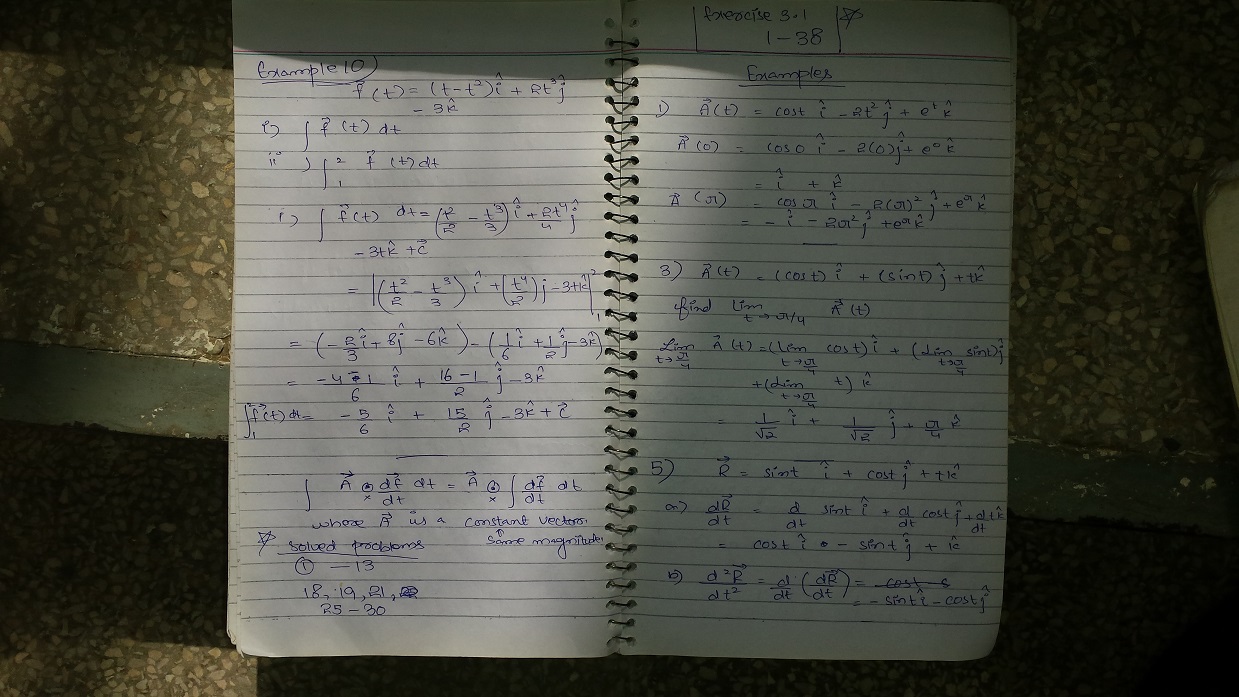 Example 10
f⃗(t) = (t-t²)î + 2t³ĵ
- 3k̂
i) ∫ f⃗(t) dt
ii) ∫₁² f⃗(t) dt
i) ∫ f⃗(t) dt = (t²/2 - t³/3) î + 2t⁴/4 ĵ
- 3tk̂ + c⃗
= |(t²/2 - t³/3) î + (t⁴/2) j - 3tk̂|₁²
= (-2/3 î + 8ĵ - 6k̂) - (1/6 î + 1/2 ĵ - 3k̂)
= -4-1/6 î + 16-1/2 ĵ - 3k̂
∫₁² f⃗(t) dt = -5/6 î + 15/2 ĵ - 3k̂ + c⃗
∫ A⃗ ⊙ₓ df⃗/dt dt = A⃗ ⊙ₓ ∫ df⃗/dt dt
where A⃗ is a constant vector.
same magnitude
☆ Solved problems
① - 13
18, 19, 21,
25 - 30
Exercise 3.1 ☆
1 - 38
Examples
1) A⃗(t) = cost î - 2t² ĵ + eᵗ k̂
A⃗(0) = cos0 î - 2(0)ĵ + e⁰ k̂
= î + k̂
A⃗(π) = cosπ î - 2(π)² ĵ + e^π k̂
= - î - 2π² ĵ + e^π k̂
3) A⃗(t) = (cost) î + (sint) ĵ + tk̂
find Lim t→π/4 A⃗(t)
Lim t→π/4 A⃗(t) = (Lim t→π/4 cost) î + (Lim t→π/4 sint) ĵ
+ (Lim t→π/4 t) k̂
= 1/√2 î + 1/√2 ĵ + π/4 k̂
5) R⃗ = sint î + cost ĵ + tk̂
a) dR⃗/dt = d/dt sint î + d/dt cost ĵ + d/dt tk̂
= cost î - sint ĵ + k̂
b) d²R⃗/dt² = d/dt (dR⃗/dt)
= - sint î - cost ĵ